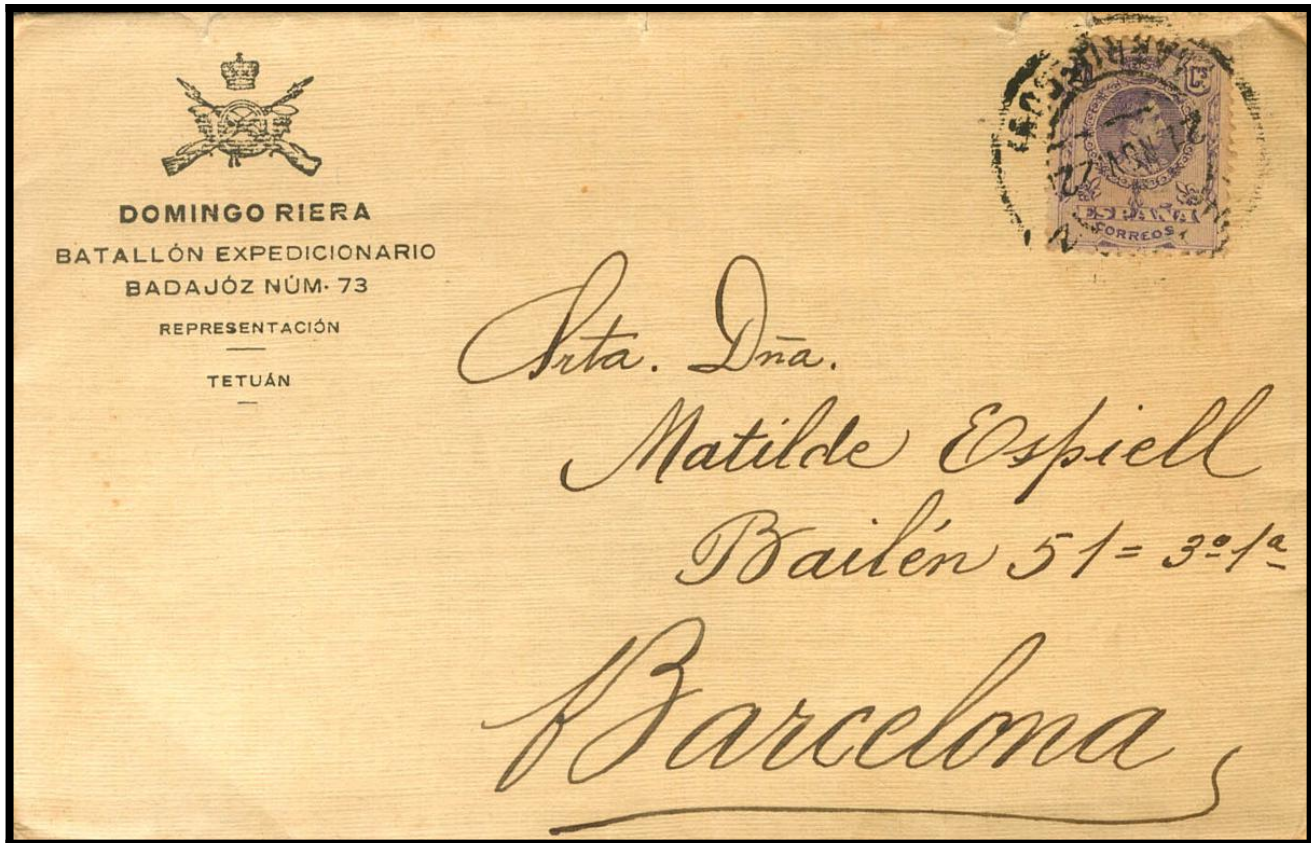 DOMINGO RIERA
BATALLÓN EXPEDICIONARIO
BADAJÓZ NÚM. 73
REPRESENTACIÓN
TETUÁN
MARRUECOS
21 NOV 22
ESPAÑA
CORREOS
Srta. Dña.
Matilde Espiell
Bailén 51 = 3º 1ª
Barcelona